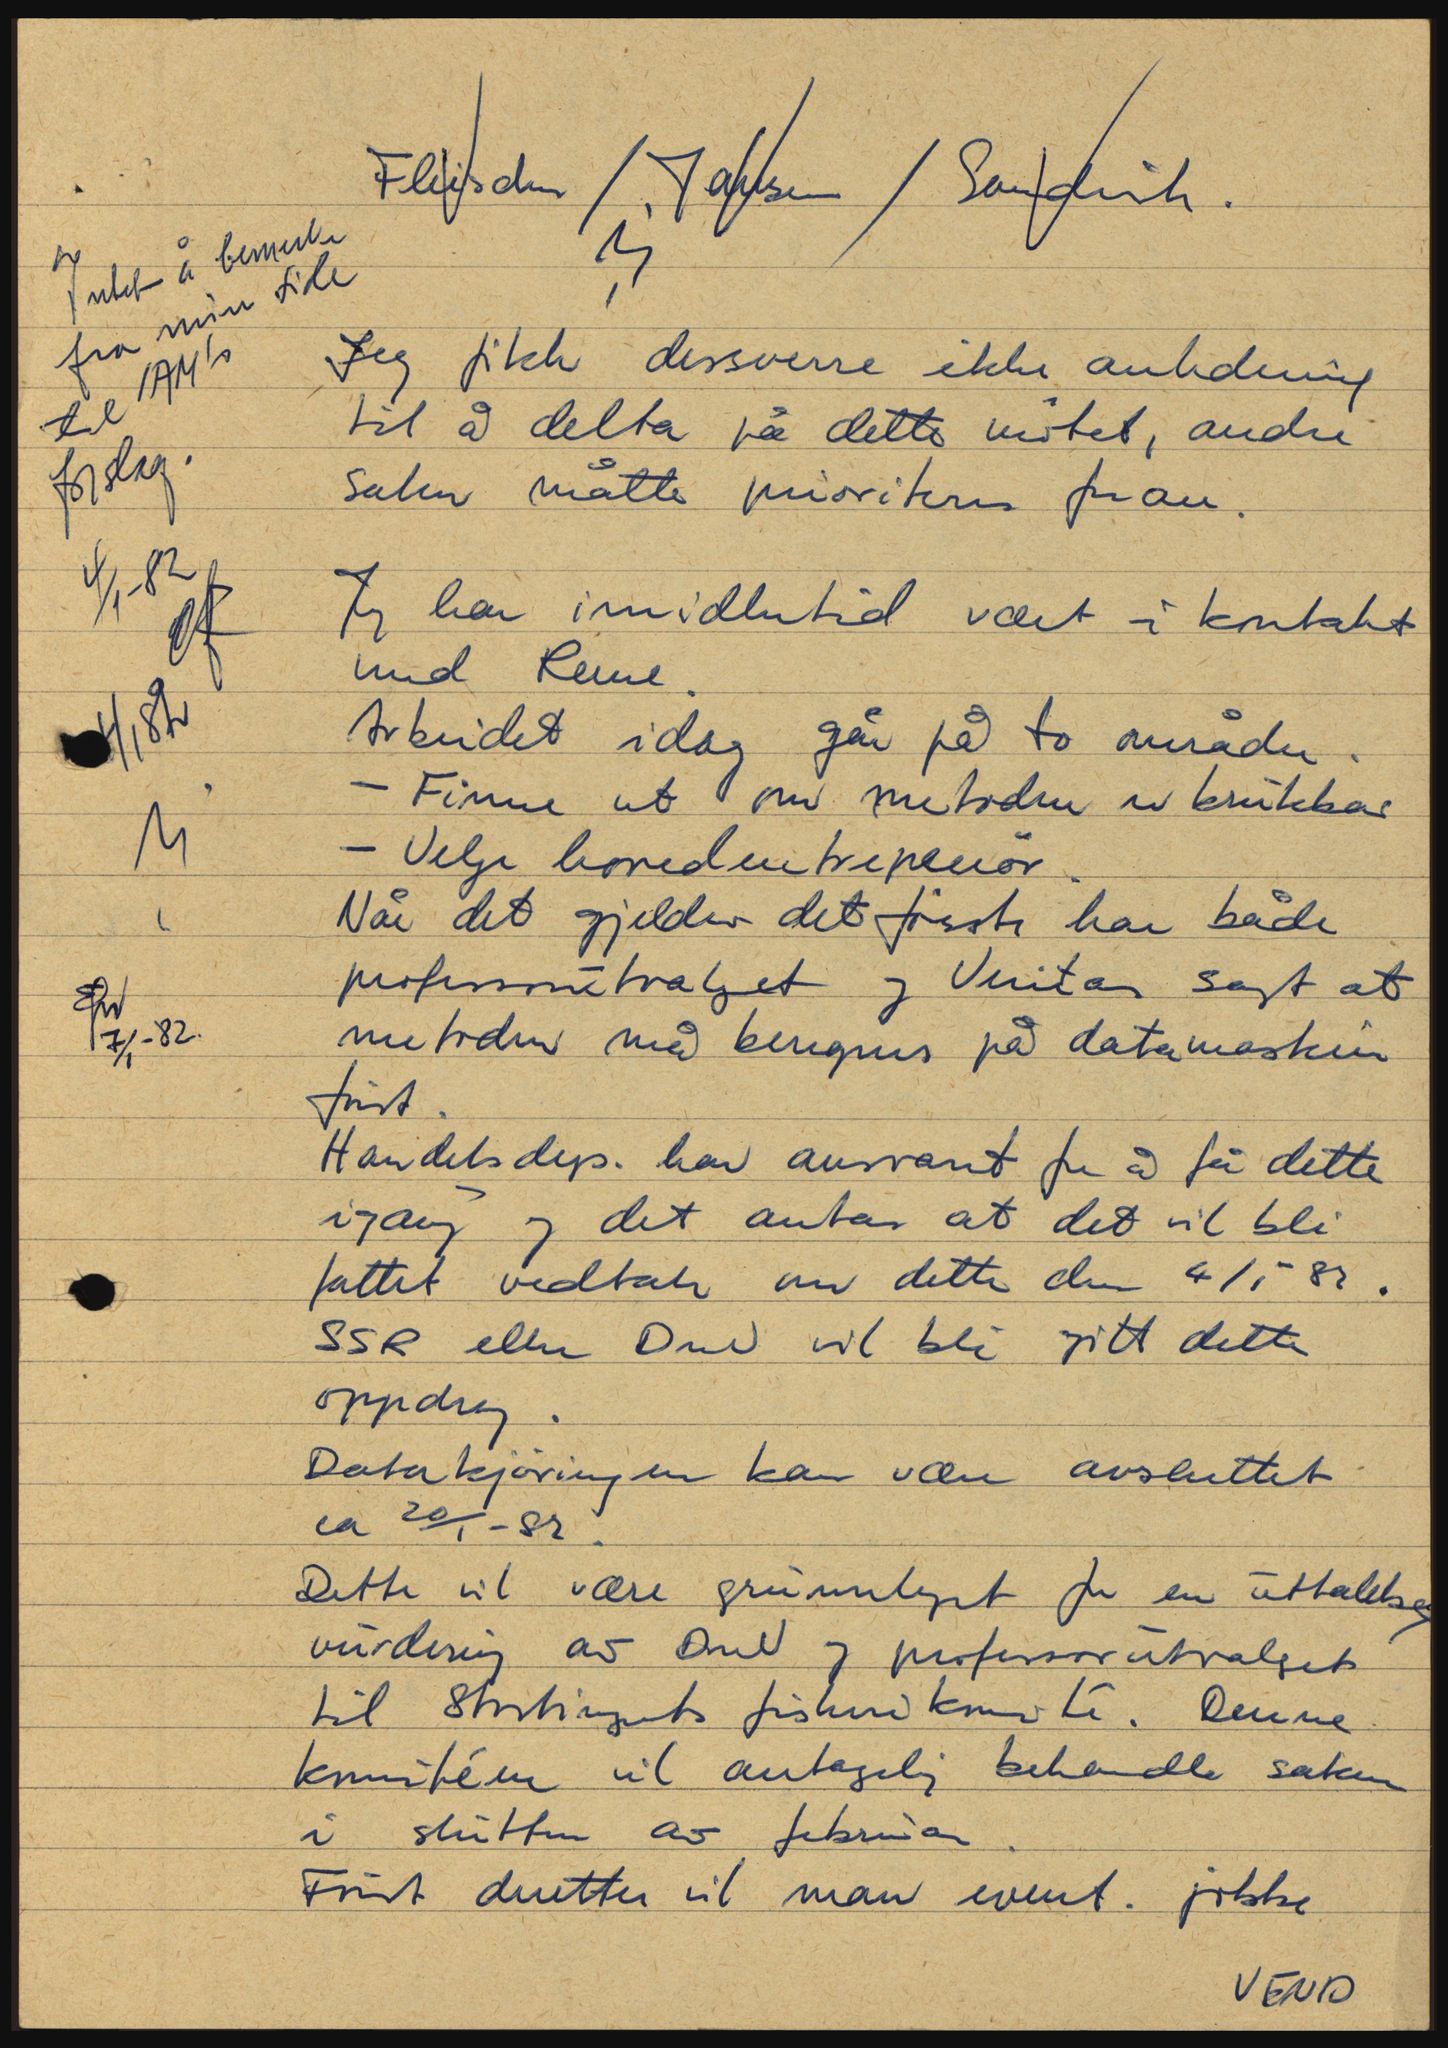 / Jansen / Sandvik.
Intet å bemerke
fra min side
til IAM's
forslag.
4/1-82
4/1 82
7/1-82.
Jeg fikk dessverre ikke anledning
til å delta på dette møtet, andre
saker måtte prioriteres foran.
Jeg har imidlertid vært i kontakt
med Reme.
Arbeidet idag går på to områder.
- Finne ut om metoden er brukbar
- Velge hovedentreprenør.
Når det gjelder det første har både
professorutvalget og Veritas sagt at
metoden må beregnes på datamaskin
først.
Handelsdep. har ansvaret for å få dette
igang og det antas at det vil bli
fattet vedtak om dette den 4/1-82.
SSR eller DnV vil bli gitt dette
oppdrag.
Datakjøringen kan være avsluttet
ca 20/1-82.
Dette vil være grunnlaget for en uttalelse og
vurdering av DnV og professorutvalget
til Stortingets fiskerikomité. Denne
komitéen vil antagelig behandle saken
i slutten av februar.
Først deretter vil man event. jobbe
VEND